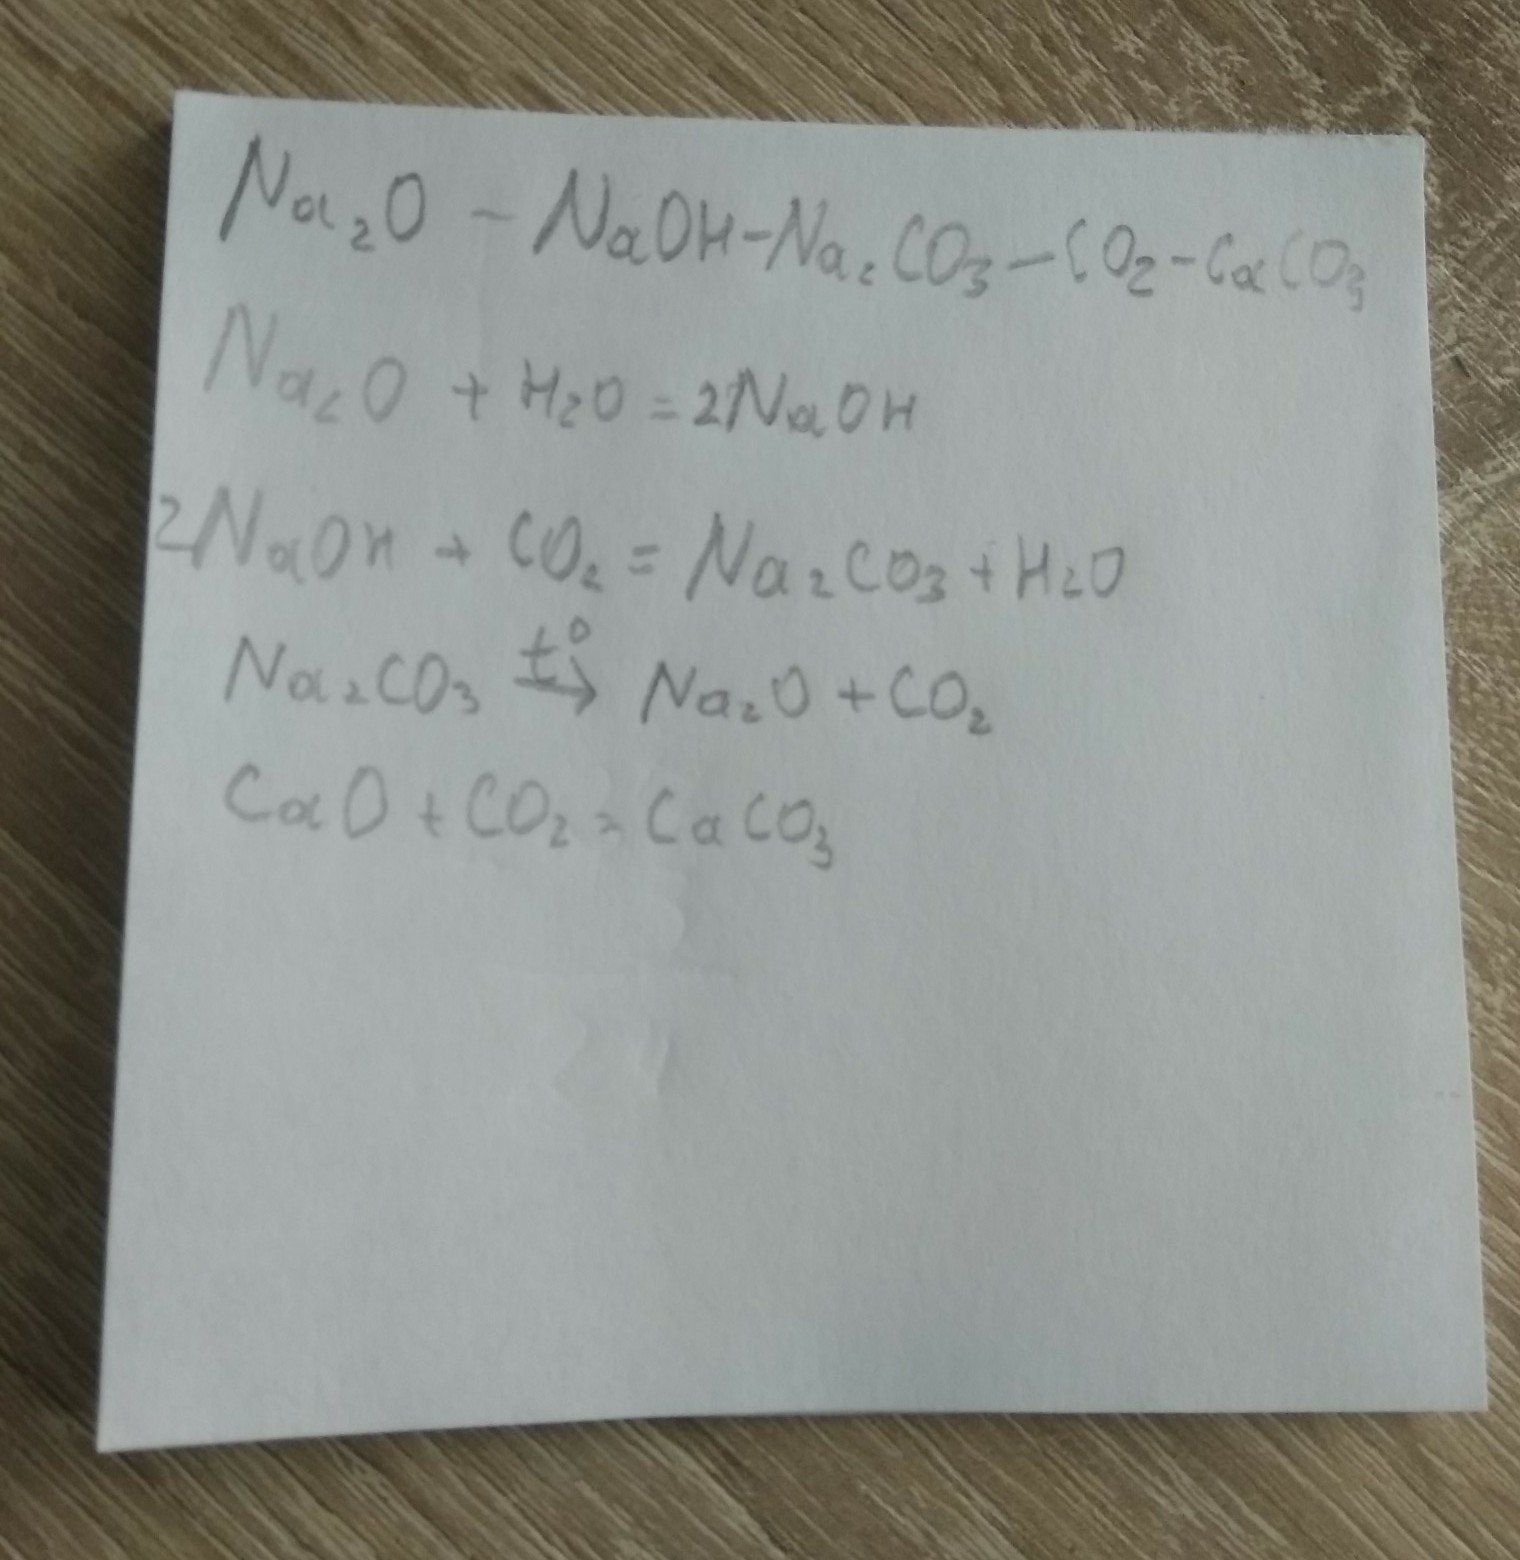 Na₂O - NaOH-Na₂CO₃-CO₂-CaCO₃
Na₂O + H₂O = 2NaOH
2NaOH + CO₂ = Na₂CO₃+H₂O
Na₂CO₃ t⁰→ Na₂O + CO₂
CaO + CO₂ = CaCO₃